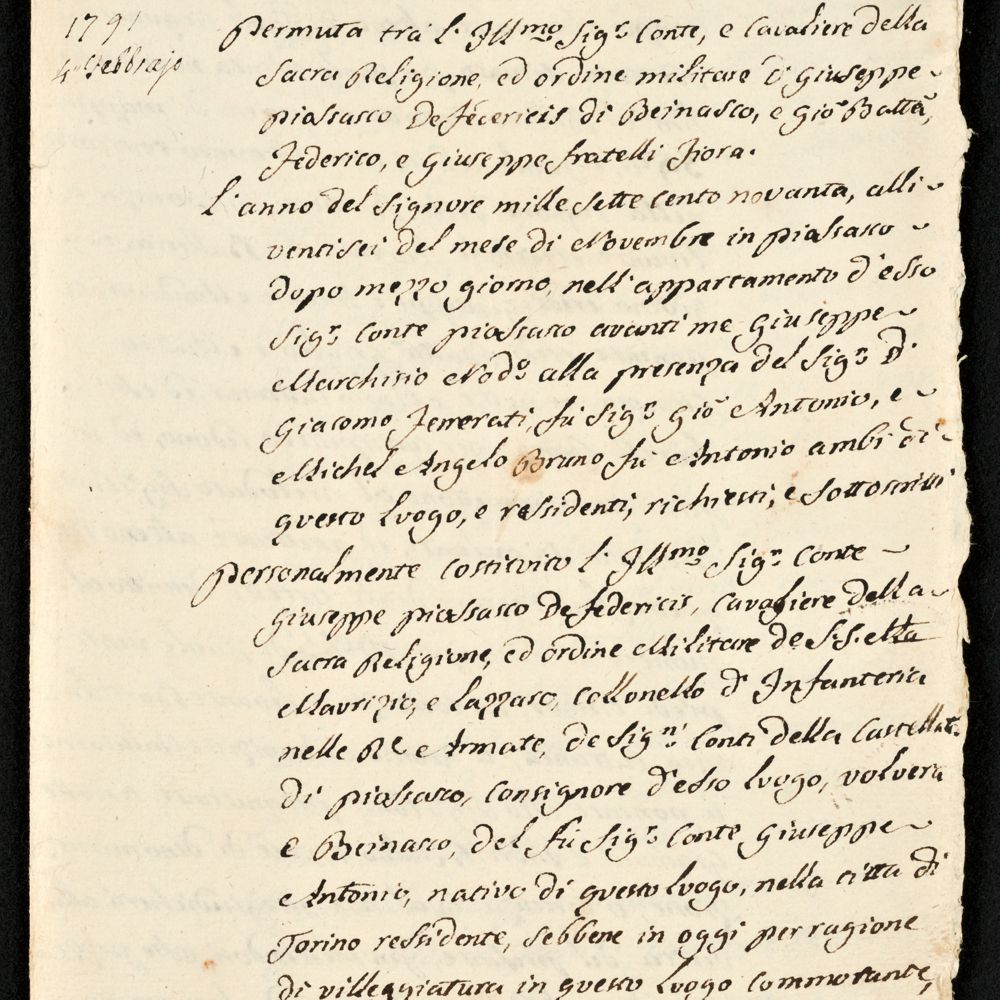 1791
4 Febbrajo
Permuta tra l'Ill.mo Sig.r Conte, e Cavaliere della
Sacra Religione, ed ordine militare D. Giuseppe
Piossasco De Federicis di Beinasco, e Gio Batta,
Federico, e Giuseppe fratelli Fiora.
L'anno del Signore mille sette cento novanta, alli
ventisei del mese di Novembre in Piossasco
dopo mezzo giorno, nell'appartamento d'esso
Sig.r Conte Piossasco avanti me Giuseppe
Marchisio Nod.o alla presenza del Sig.r D.
Giacomo Fenerati, fù Sig.r Gio Antonio, e
Michel Angelo Bruno fù Antonio ambi di
questo luogo, e residenti, richiesti, e sottoscritti
Personalmente costituito l'Ill.mo Sig.r Conte
Giuseppe Piossasco De Federicis, Cavagliere della
Sacra Religione, ed ordine Militare de S.S.
Maurizio, e Lazzaro, Collonello d'Infanteria
nelle R.e Armate, de Sign.i Conti della Castellat.
di Piossasco, Consignore d'esso luogo, Volvera
e Beinasco, del fù Sig.r Conte Giuseppe
Antonio, nativo di questo luogo, nella città di
Torino residente, sebbene in oggi per ragione
di villeggiatura in questo luogo commorante,